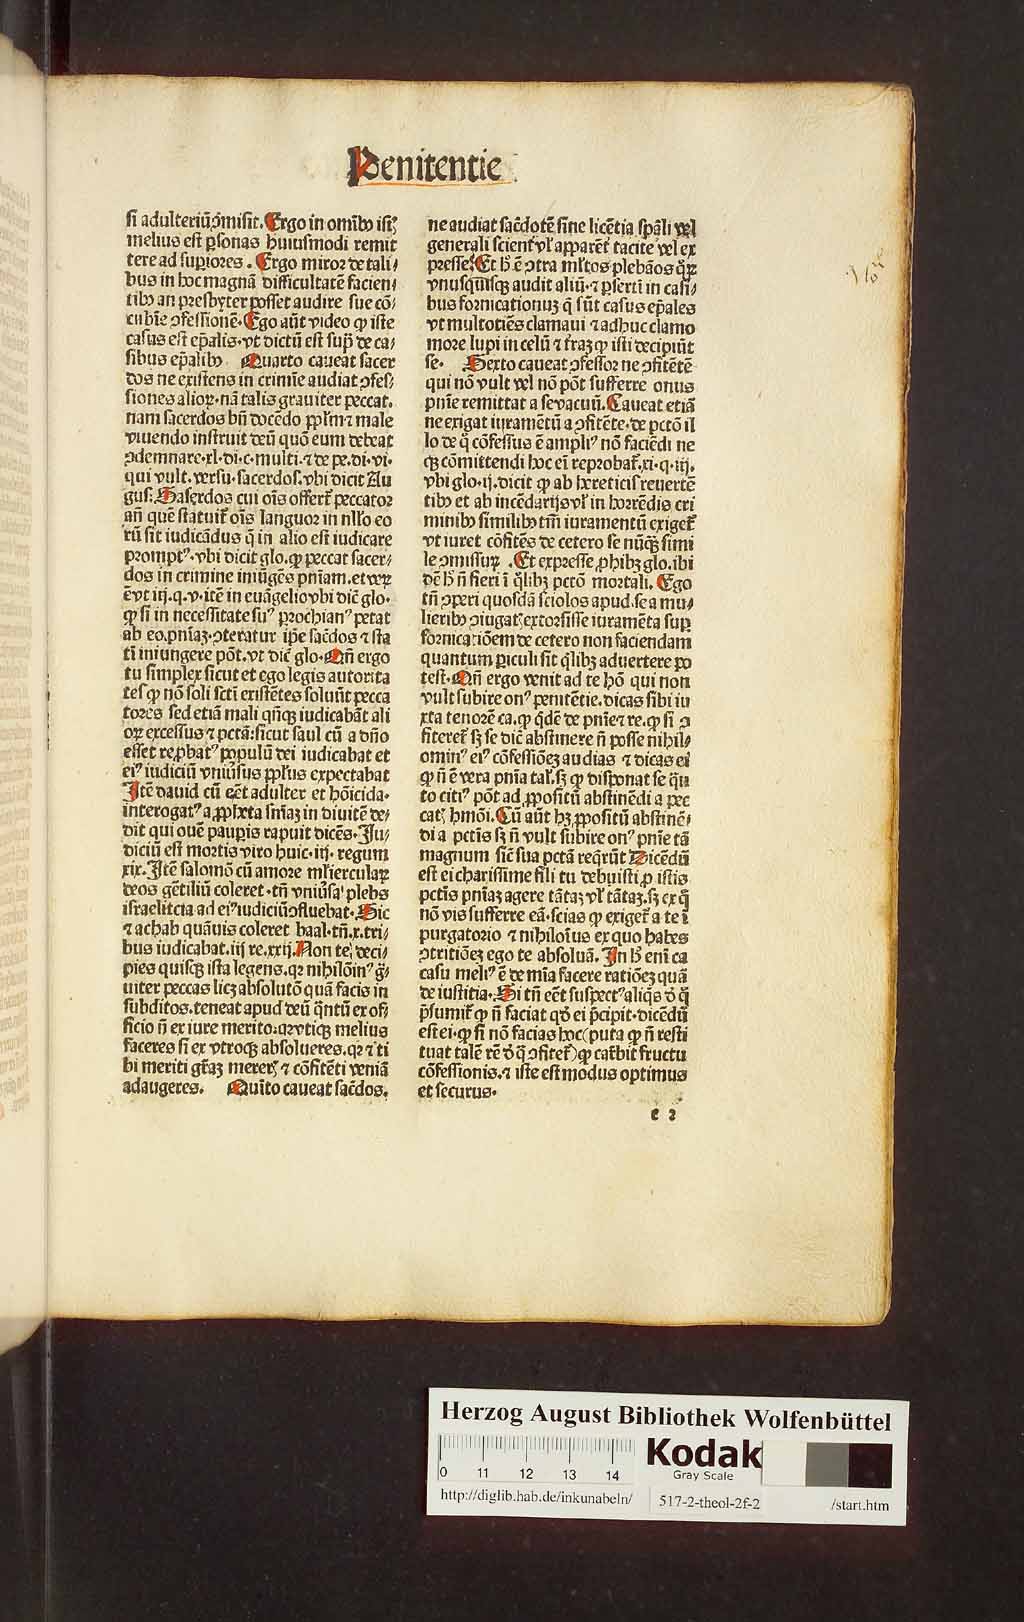 Penitentie
si adulteriū ꝯmisit. Ergo in omībꝰ istꝭ
melius est ꝑsonas huiusmodi remit
tere ad suꝑiores. Ergo miror de tali⸗
bus in hoc magnā difficultatē facien⸗
tibꝰ an presbyter posset audire sue cō⸗
cubīe ꝯfessionē. Ego aūt video ꝙ iste
casus est ep̄alis. vt dictū est supͣ de ca⸗
sibus ep̄alibꝰ. Quarto caueat sacer
dos ne existens in crimīe audiat ꝯfes⸗
siones alioꝝ. nā talis grauiter peccat.
nam sacerdos bn̄ docēdo pplm̄ ⁊ male
viuendo instruit deū quō eum debeat
ꝯdemnare. xl. di. c. multi. ⁊ de pe. di. vi.
qui vult. versu. sacerdos. vbi dicit Au
gus. Saserdos cui oīs offert᷑ peccator
an̄ quē statuit᷑ oīs languor in nllo eo
rū sit iudicādus q̄ in alio est iudicare
promptꝰ. vbi dicit glo. ꝙ peccat sacer⸗
dos in crimine iniūgēs pn̄iam. et
iij. q. v. itē in euāgelio vbi dic̄ glo.
ꝙ si in necessitate suꝰ prochianꝰ petat
ab eo. pn̄iaꝫ. ꝯteratur ip̄e sac̄dos ⁊ sta
tī iniungere pōt. vt dic̄ glo. Qn̄ ergo
tu simplex sicut et ego legis autorita
tes ꝙ nō soli scti existētes soluūt pecca
tores sed etiā mali qn̄qꝫ iudicabāt ali
oꝝ excessus ⁊ pctā: sicut saul cū a dn̄o
esset reꝓbatꝰ populū dei iudicabat et
eiꝰ iudiciū vniūsus pplus expectabat
Itē dauid cū eēt adulter et hōicida.
interogatꝰ a ꝓpheta sn̄iaꝫ in diuitē de⸗
dit qui ouē pauꝑis rapuit dicēs. Iu⸗
diciū est mortis viro huic. iij. regum
xix. Itē salomō cū amore mĺiercularꝝ
deos gētiliū coleret. tn̄ vniūsaꝰ plebs
israelitcia ad eiꝰ iudiciū ꝯfluebat. Sic
⁊ achab quāuis coleret baal. tn̄. x. tri⸗
bus iudicabat. iij re. xxij. Non te deci⸗
pies quisqꝫ ista legens. qꝛ nihilōinꝰ gͣ⸗
uiter peccas licꝫ absolutō quā facis in
subditos. teneat apud deū q̄ntū ex of⸗
ficio n̄ ex iure merito: qꝛ vtiqꝫ melius
faceres si ex vtroqꝫ absolueres. qꝛ ⁊ ti
bi meriti gr̄aꝫ merer ⁊ cōfitēti veniā
adaugeres. Quīto caueat sac̄dos.
ne audiat sac̄dotē sine licētia spāli vel
generali scient᷑ vl᷑ apparēt᷑ tacite vel ex
presse. Et h̄ ē ꝯtra ml᷑tos plebāos
vnusquisqꝫ audit aliū. ⁊ p̄sertī in casi⸗
bus fornicationuꝫ q̄ sūt casus ep̄ales
vt multotiēs clamaui ⁊ adhuc clamo
more lupi in celū ⁊ tr̄aꝫ ꝙ isti decipiūt
se. Sexto caueat ꝯfessor ne ꝯfitētē
qui nō vult vel nō pōt sufferre onus
pn̄ie remittat a se vacuū. Caueat etiā
ne exigat iuramētū a ꝯfitēte. de pctō il
lo de q̄ cōfessus ē ampliꝰ nō faciēdi ne
qꝫ cōmittendi hoc eī reprobat᷑. xi. q. iij.
vbi glo. ij. dicit ꝙ ab hereticis reuertē
tibꝰ et ab incēdarijs vl᷑ in horrēdis cri
minibꝰ similibꝰ tm̄ iuramentū exiget᷑
vt iuret cōfitēs de cetero se nūqꝫ simi
le ꝯmissurꝝ. Et expresse ꝓhibꝫ glo. ibi
dē h̄ n̄ fieri ī q̄libꝫ pctō mortali. Ego
tn̄ ꝯperi quosdā sciolos apud se a mu⸗
lieribꝰ ꝯiugatꝭ extorsisse iuramēta suꝑ
fornicatiōem de cetero non faciendam
quantum ꝑiculi sit q̄libꝫ aduertere po
test. Qn̄ ergo venit ad te hō qui non
vult subire onꝰ penitētie. dicas sibi iu
xta tenorē ca. ꝙ q̄dē de pn̄ie ⁊ re. ꝙ si ꝯ
fiteret᷑ sꝫ se dic̄ abstinere n̄ posse nihil⸗
ominꝰ eiꝰ cōfessiōeꝫ audias ⁊ dicas ei
ꝙ n̄ ē vera pn̄ia tal᷑. sꝫ ꝙ disponat se q̄n
to citiꝰ pōt ad ꝓpositū abstinēdi a pec
catꝭ hmōi. Cū aūt hꝫ ꝓpositū abstinē⸗
di a pctīs sꝫ n̄ vult subire onꝰ pn̄ie tā
magnum sic̄ sua pctā req̄rūt Dicēdū
est ei charissime fili tu debuisti ꝓ istis
pctīs pn̄iaꝫ agere tātaꝫ vl᷑ tātaꝫ. sꝫ ex q̄
nō vis sufferre eā. scias ꝙ exiget᷑ a te ī
purgatorio ⁊ nihiloīus ex quo habes
ꝯtritiōeꝫ ego te absoluā. In h̄ enī ca
casu meliꝰ ē de mīa facere ratiōeꝫ quā
de iustitia. Si tn̄ eēt suspectꝰ aliq̄s
p̄sumit᷑ ꝙ n̄ faciat qd̄ ei p̄cipit. dicēdū
est ei. ꝙ si nō facias hoc (puta ꝙ n̄ resti
tuat talē rē ꝯfitet᷑) ꝙ carēbit fructu
cōfessionis. ⁊ iste est modus optimus
et securus.
e 2
Herzog August Bibliothek Wolfenbüttel
0 11 12 13 14
Kodak
Gray Scale
http://diglib.hab.de/inkunabeln/
517-2-theol-2f-2
/start.htm